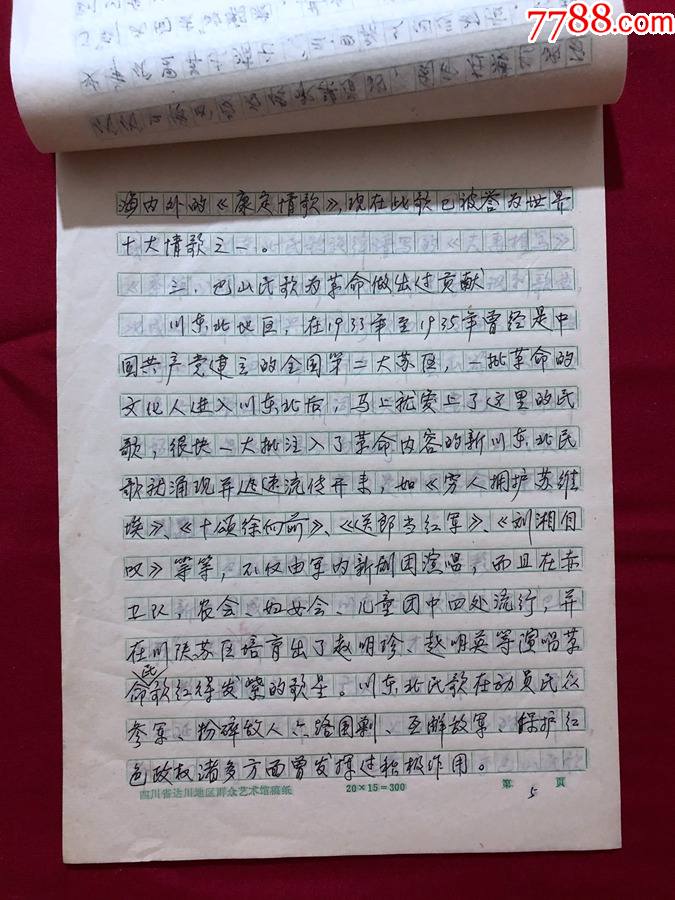 7788.com
海内外的《康定情歌》,现在此歌已被誉为世界
十大情歌之一。
三、巴山民歌为革命做出过贡献
川东北地区,在1933年至1935年曾经是中
国共产党建立的全国第二大苏区,一批革命的
文化人进入川东北后,马上就爱上了这里的民
歌,很快一大批注入了革命内容的新川东北民
歌就涌现并迅速流传开来,如《穷人拥护苏维
埃》、《十颂徐向前》、《送郎当红军》、《刘湘自
叹》等等,不仅由军内新剧团演唱,而且在赤
卫队,农会、妇女会、儿童团中四处流行,并
在川陕苏区培育出了赵明珍、赵明英等演唱革
命民歌红得发紫的歌星。川东北民歌在动员民众
参军、粉碎敌人六路围剿、瓦解敌军、保护红
色政权诸多方面曾发挥过积极作用。
四川省达川地区群众艺术馆稿纸 20×15=300 第5页